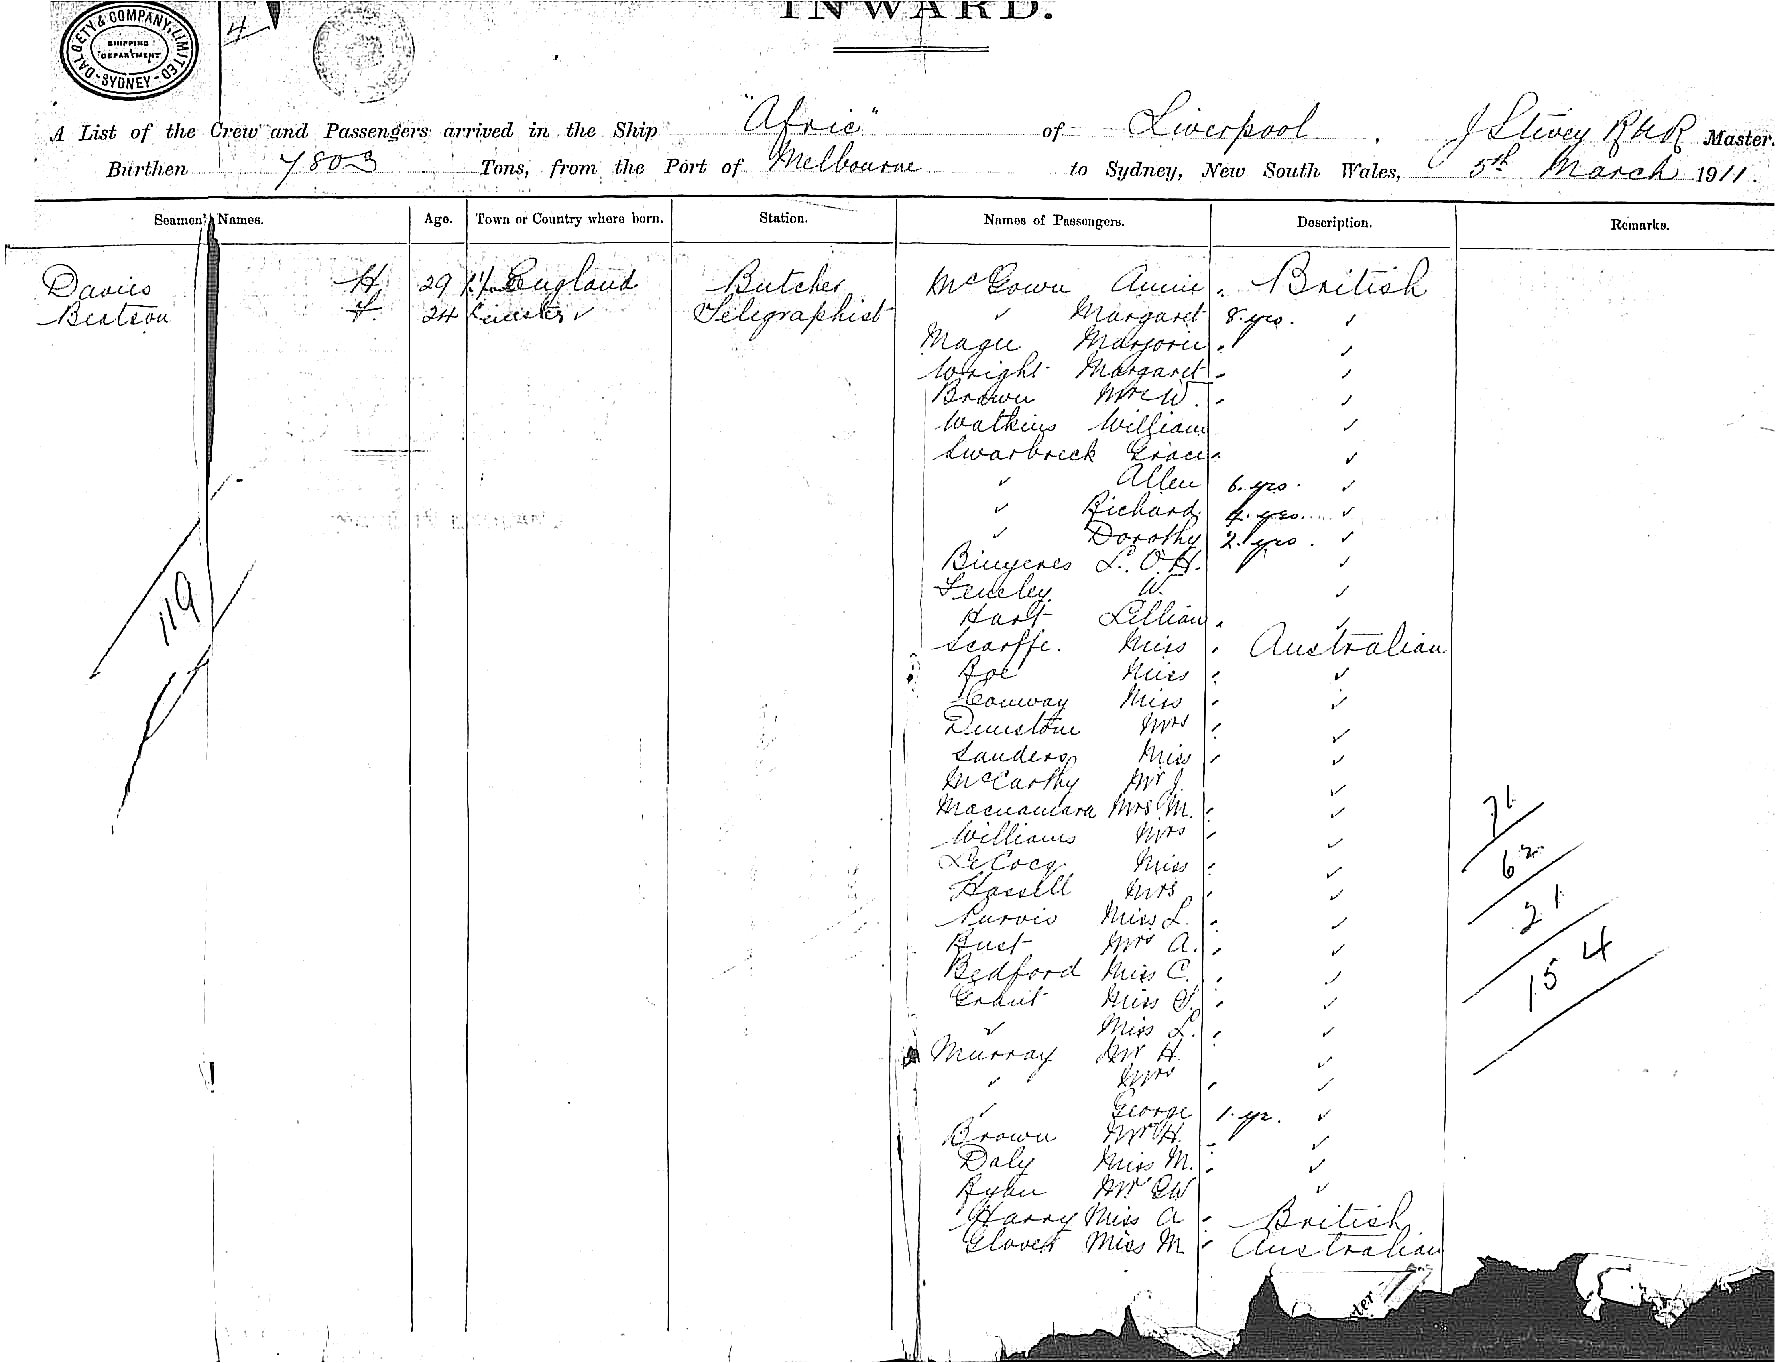 INWARD.
DALGETY & COMPANY, LIMITED
SHIPPING DEPARTMENT
SYDNEY
4
A List of the Crew and Passengers arrived in the Ship "Afric" of Liverpool. J Stivey RNR Master.
Burthen 7803 Tons, from the Port of Melbourne to Sydney, New South Wales, 5th March 1911.
Seamen's Names. Age. Town or Country where born. Station. Names of Passengers. Description. Remarks.
Davies H 29 England Butcher McGown Annie British
Beatson F. 24 Leinster Telegraphist " Margaret 8 yrs. "
Magee Marjorie "
Wright Margaret "
Brown Mrs W. "
Watkins William "
Swarbreck Grace "
" Allen 6. yrs. "
" Richard 4. yrs. "
" Dorothy 2. yrs. "
L. O. H. "
W. "
Hart Lillian "
Scarffe. Miss Australian
Miss "
Conway Miss "
Dunstone Mrs "
Sanders Miss "
McCarthy Mr J. "
Macnamara Mrs M. "
Williams Mrs "
LeCocq Miss "
Hassell Mrs "
Purvis Miss L. "
Mrs A. "
Bedford Miss C. "
Grant Miss "
" Miss L. "
Murray Mr H. "
" Mrs "
" George 1. yr. "
Brown Mr H. "
Daly Miss M. "
Ryan Mr "
Harry Miss A British
Glover Miss M Australian
119
71
62
21
154